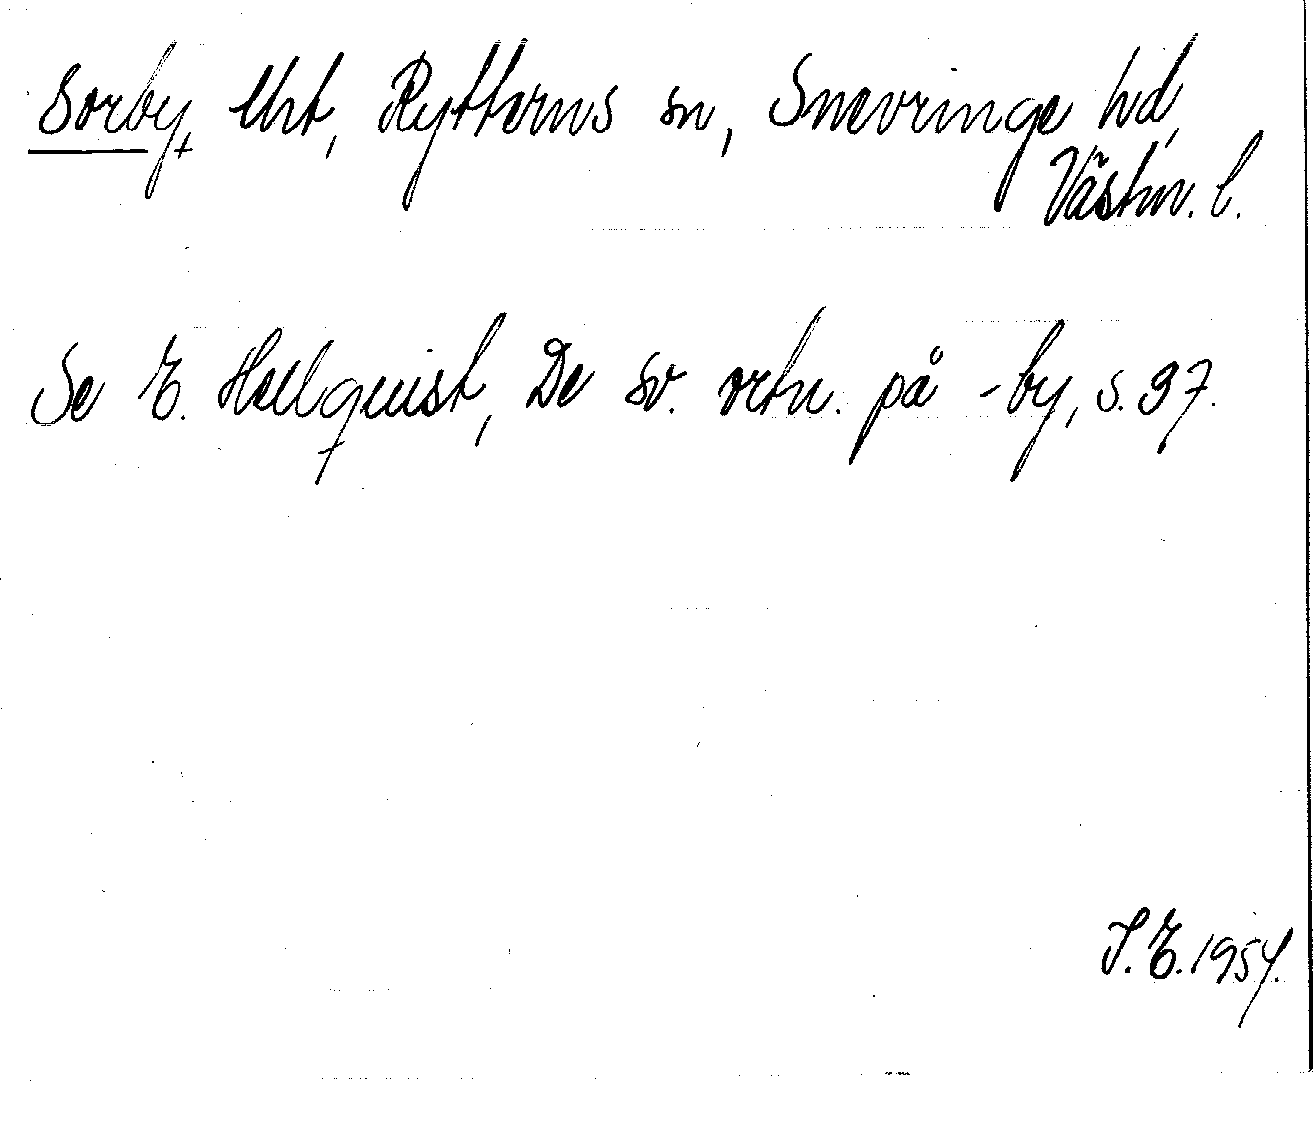 Sorby, Urt, Rytterns sn, Snevringe hd,
Västm. l.
Se E. Hellquist, De sv. ortn. på -by, s. 37.
S. E. 1954.